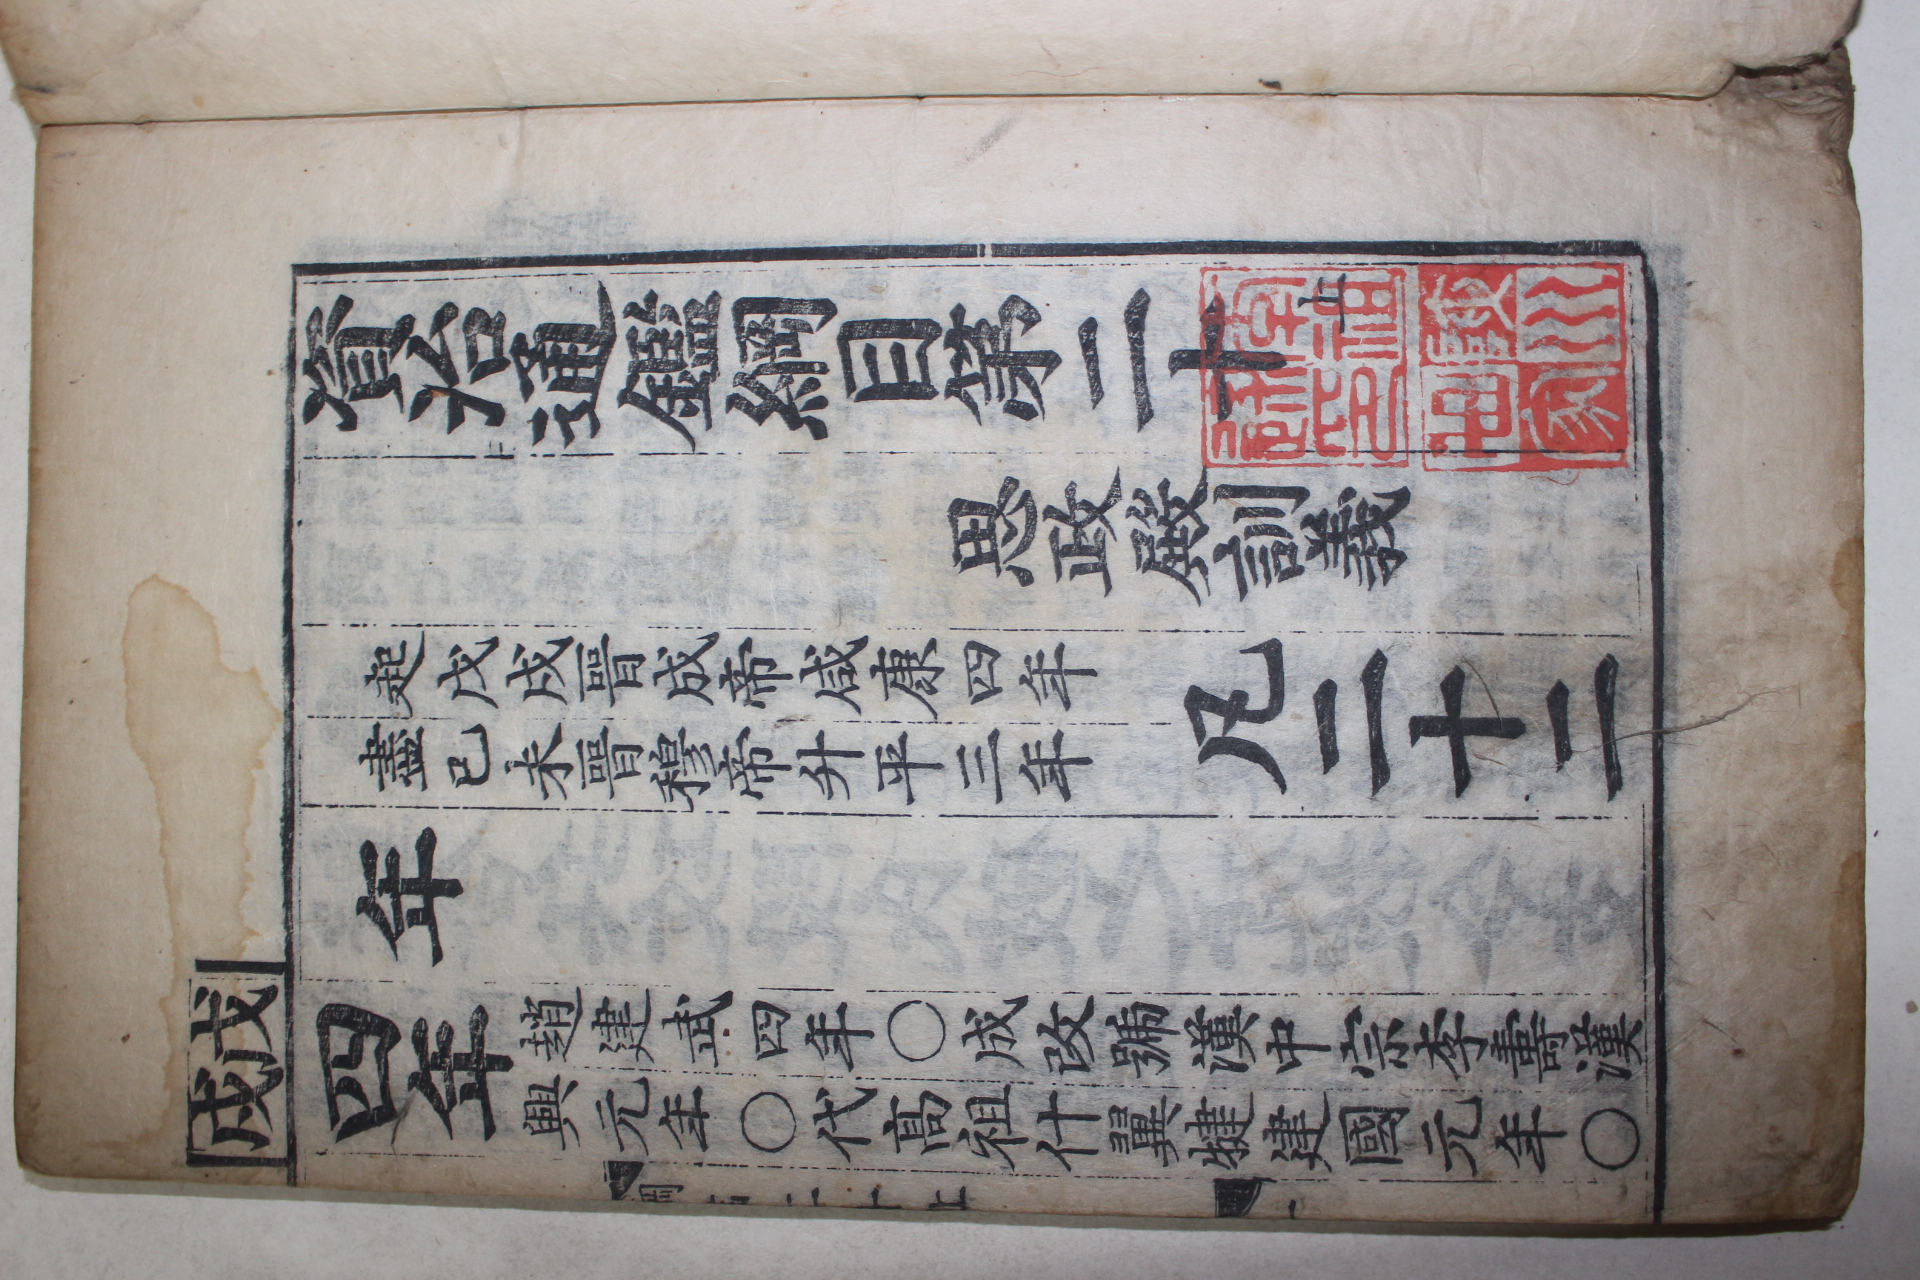 資治通鑑綱目第二十上
思政殿訓義
起戊戌晉成帝咸康四年
盡己未晉穆帝升平三年
凡二十二
年
戊戌
四年
趙建武四年〇成改號漢中宗李壽漢
興元年〇代高祖什翼犍建國元年〇